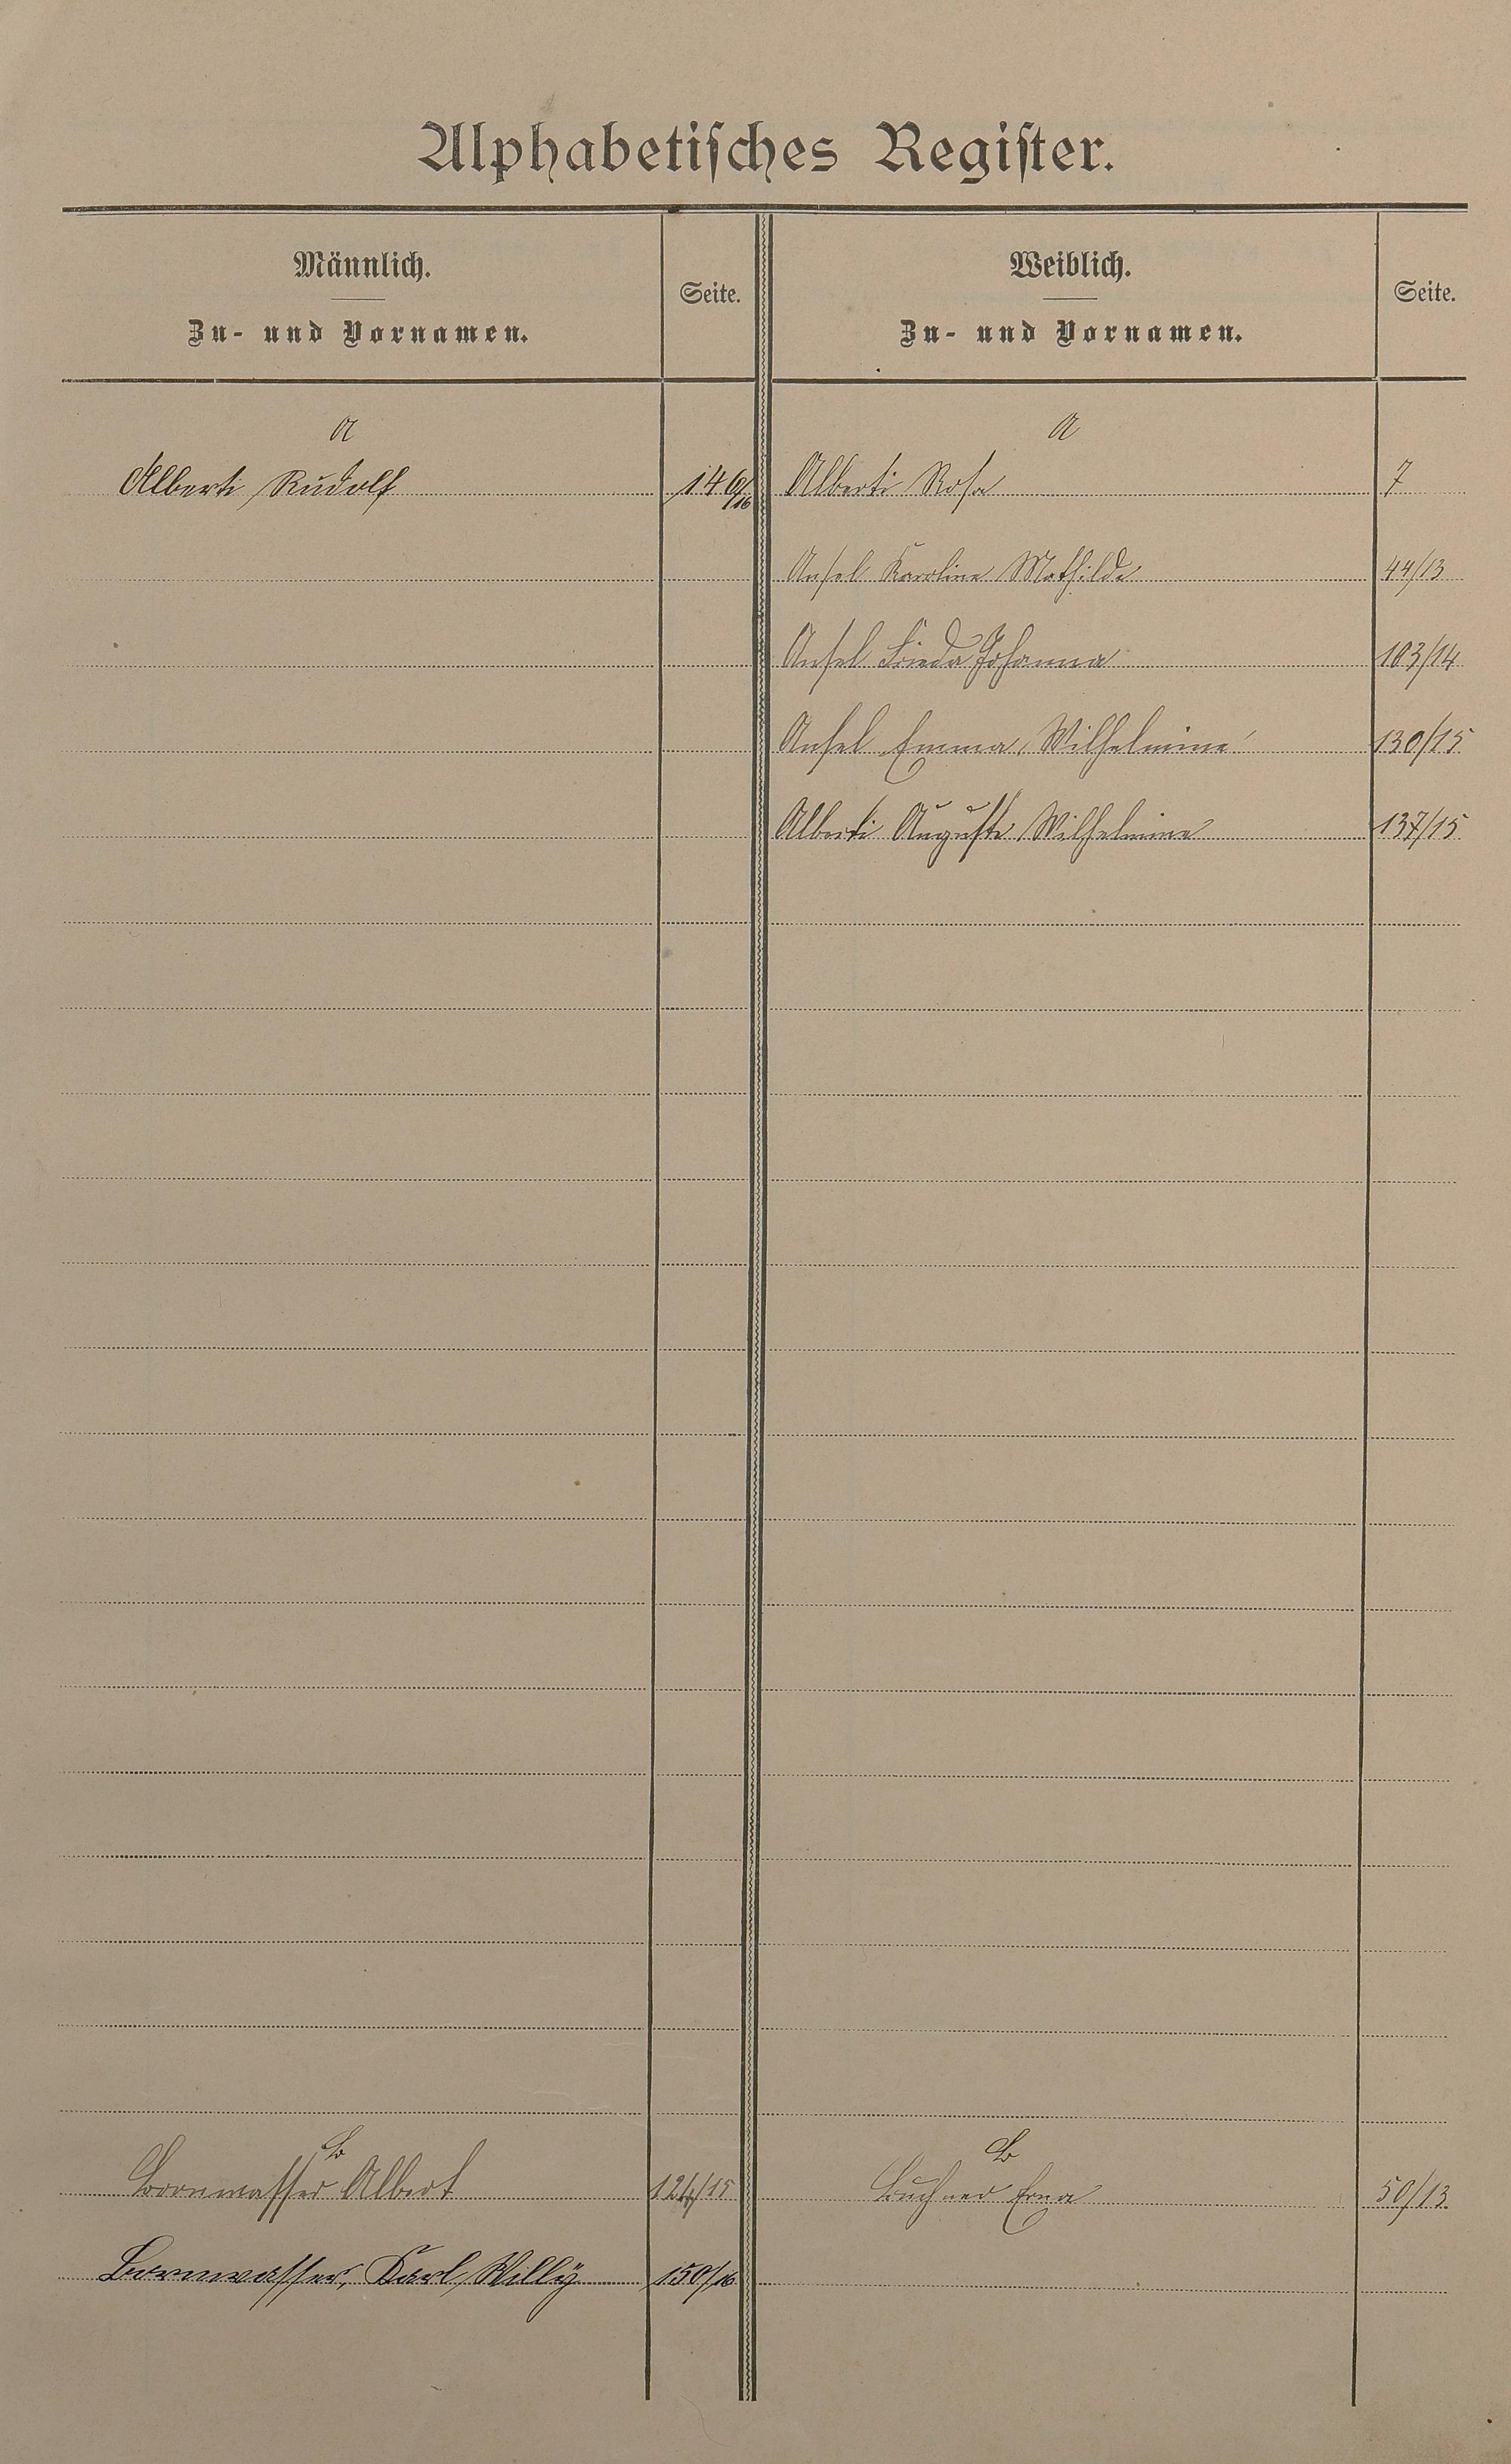 Alphabetisches Register.
Männlich.
Zu- und Vornamen.
Seite.
Weiblich.
Zu- und Vornamen.
Seite.
A
Alberti Rudolf 146/16
A
Alberti Rosa 7
Ansel Karoline Mathilde 44/13
Ansel Frieda Johanna 103/14
Ansel Emma Wilhelmine 130/15
Alberti Auguste Wilhelmine 137/15
B
Bornwasser Albert 124/15
Bornwasser, Karl Willy 150/16
B
Buchner Erna 50/13